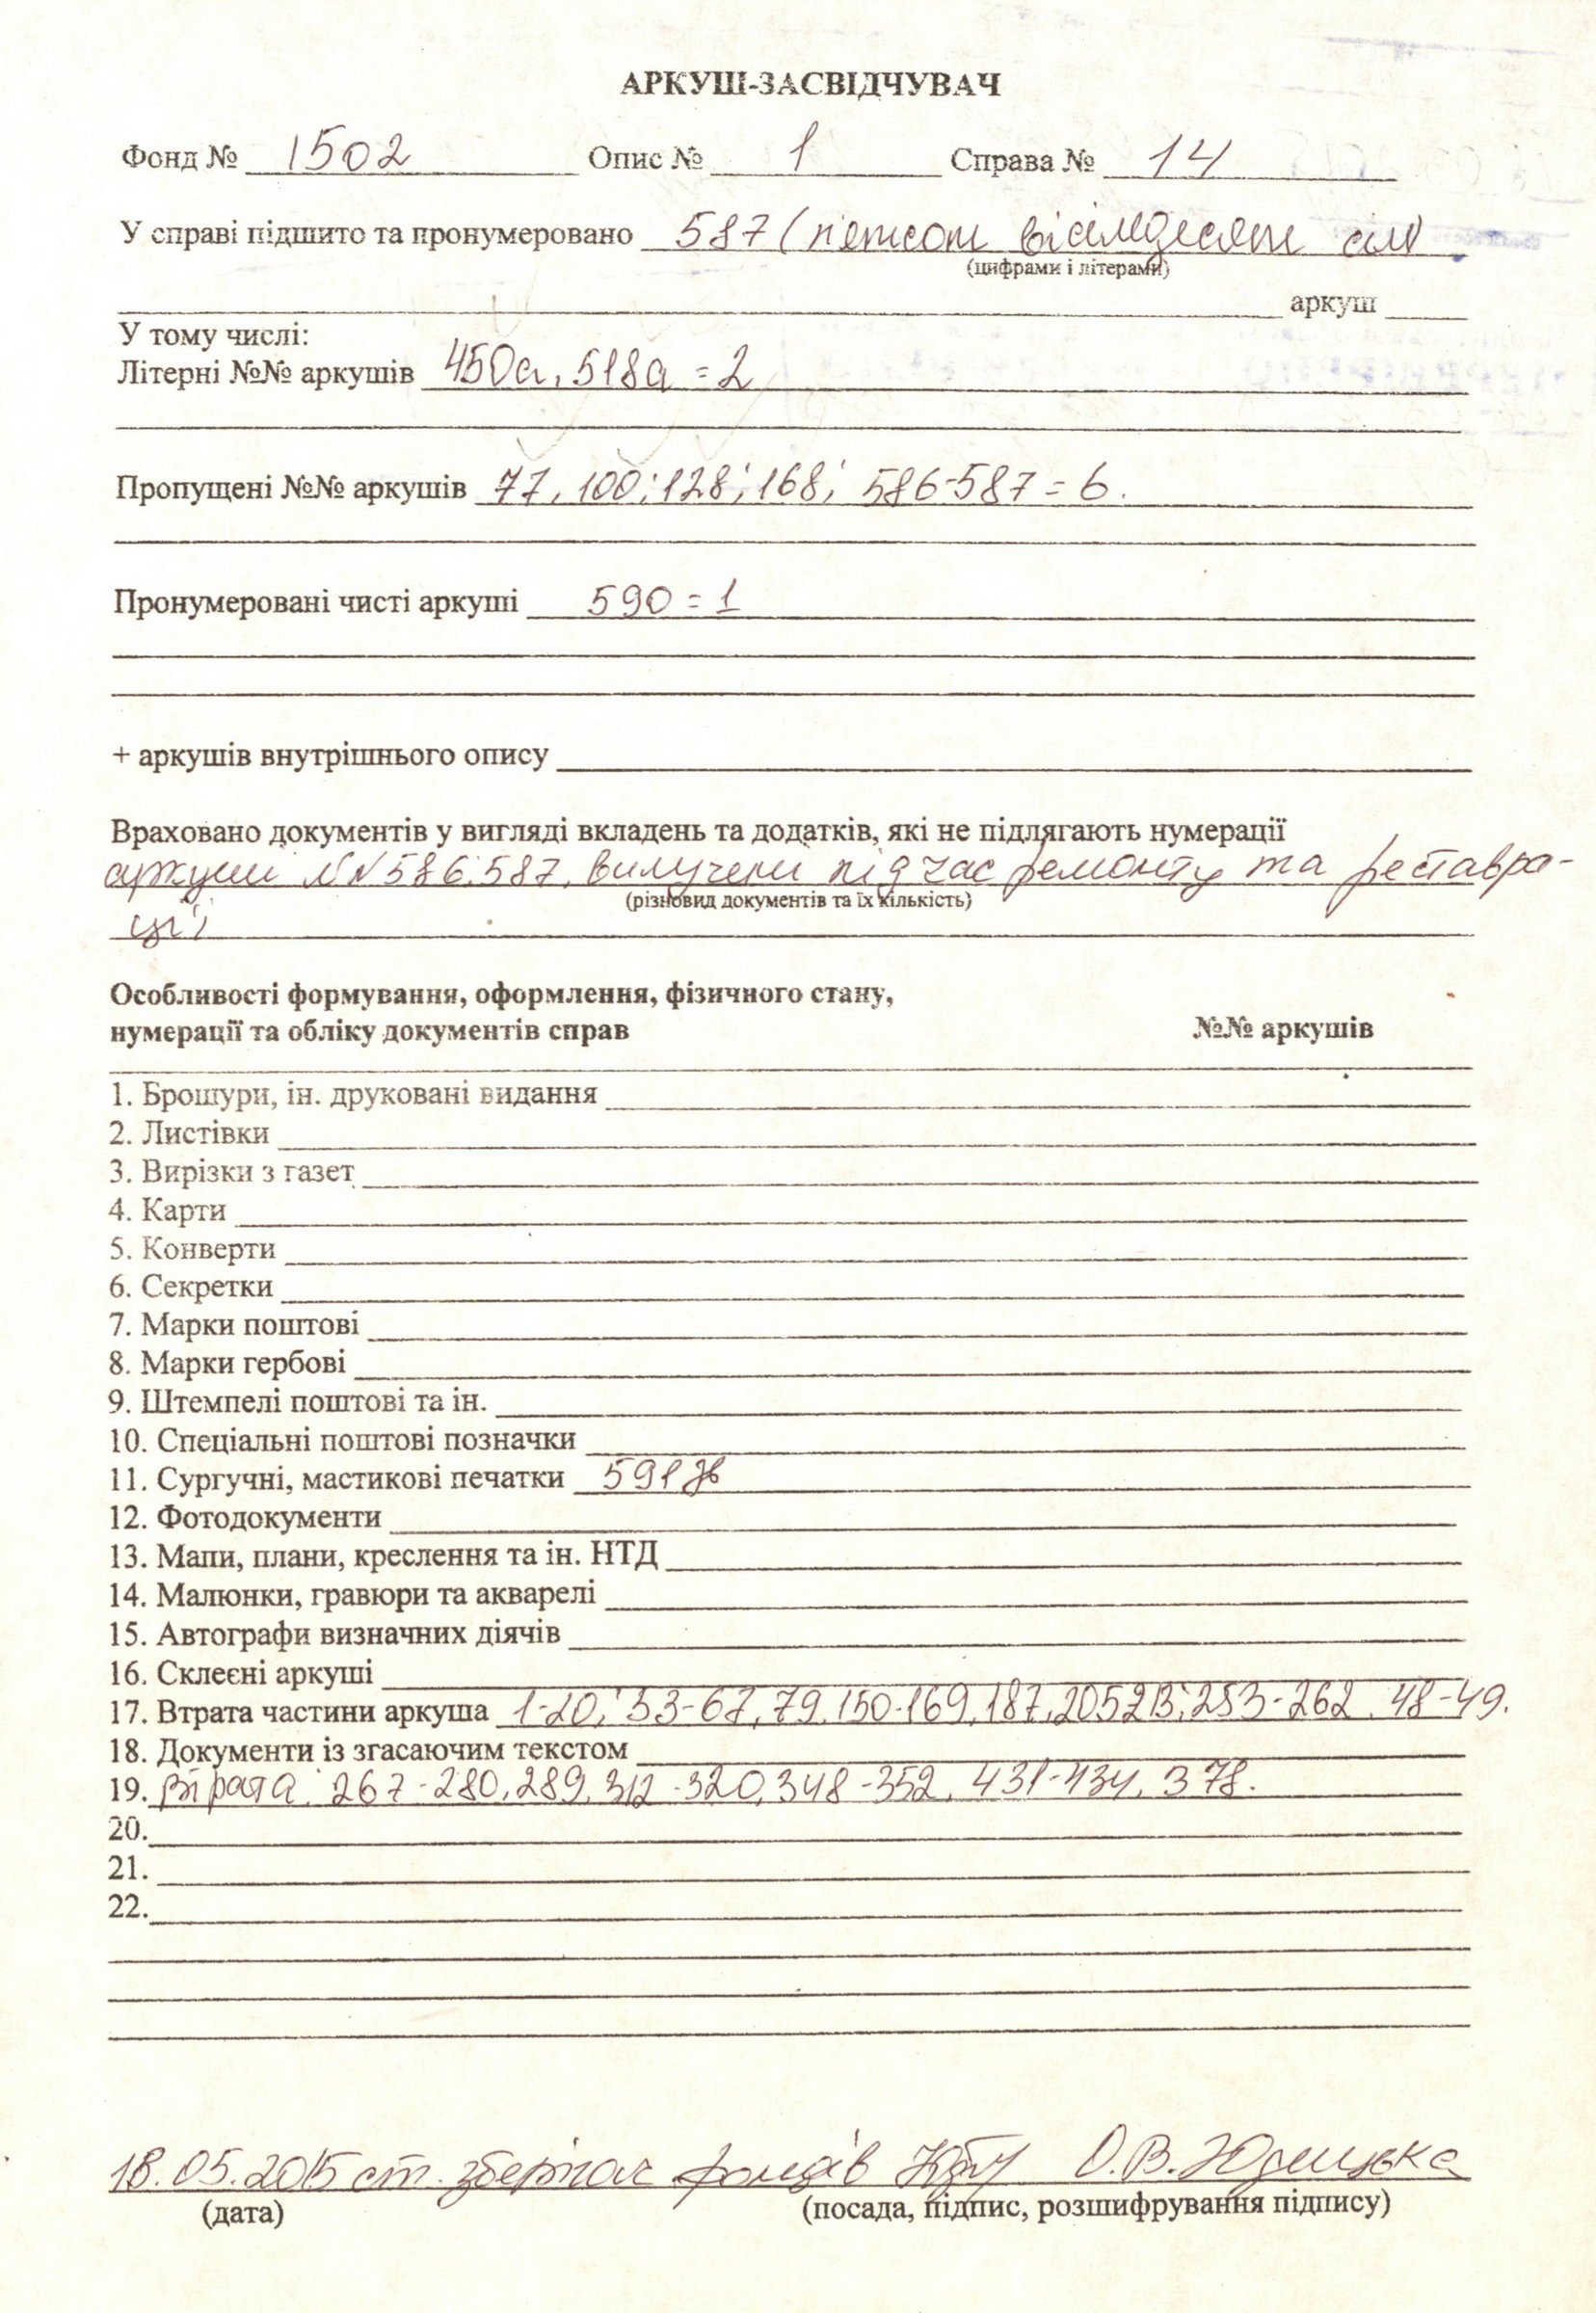 АРКУШ-ЗАСВІДЧУВАЧ
Фонд № 1502 Опис № 1 Справа № 14
У справі підшито та пронумеровано 587 (пятсот вісімдесят сім
(цифрами і літерами)
аркуш
У тому числі:
Літерні №№ аркушів 450а, 518а = 2
Пропущені №№ аркушів 77, 100; 128; 168; 586-587 = 6.
Пронумеровані чисті аркуші 590 = 1
+ аркушів внутрішнього опису
Враховано документів у вигляді вкладень та додатків, які не підлягають нумерації
аркуші №№ 586, 587, вилучени під час ремонту та реставра-
(різновид документів та їх кількість)
ції
Особливості формування, оформлення, фізичного стану,
нумерації та обліку документів справ №№ аркушів
1. Брошури, ін. друковані видання
2. Листівки
3. Вирізки з газет
4. Карти
5. Конверти
6. Секретки
7. Марки поштові
8. Марки гербові
9. Штемпелі поштові та ін.
10. Спеціальні поштові позначки
11. Сургучні, мастикові печатки 591
12. Фотодокументи
13. Мапи, плани, креслення та ін. НТД
14. Малюнки, гравюри та акварелі
15. Автографи визначних діячів
16. Склеєні аркуші
17. Втрата частини аркуша 1-20; 53-67, 79, 150-169, 187, 205 213; 253-262, 48-49.
18. Документи із згасаючим текстом
19. втрата: 267-280, 289, 312-320, 348-352, 431-434, 378.
20.
21.
22.
18.05.2015 ст. зберігач фондів О.В. Юдицька
(дата) (посада, підпис, розшифрування підпису)